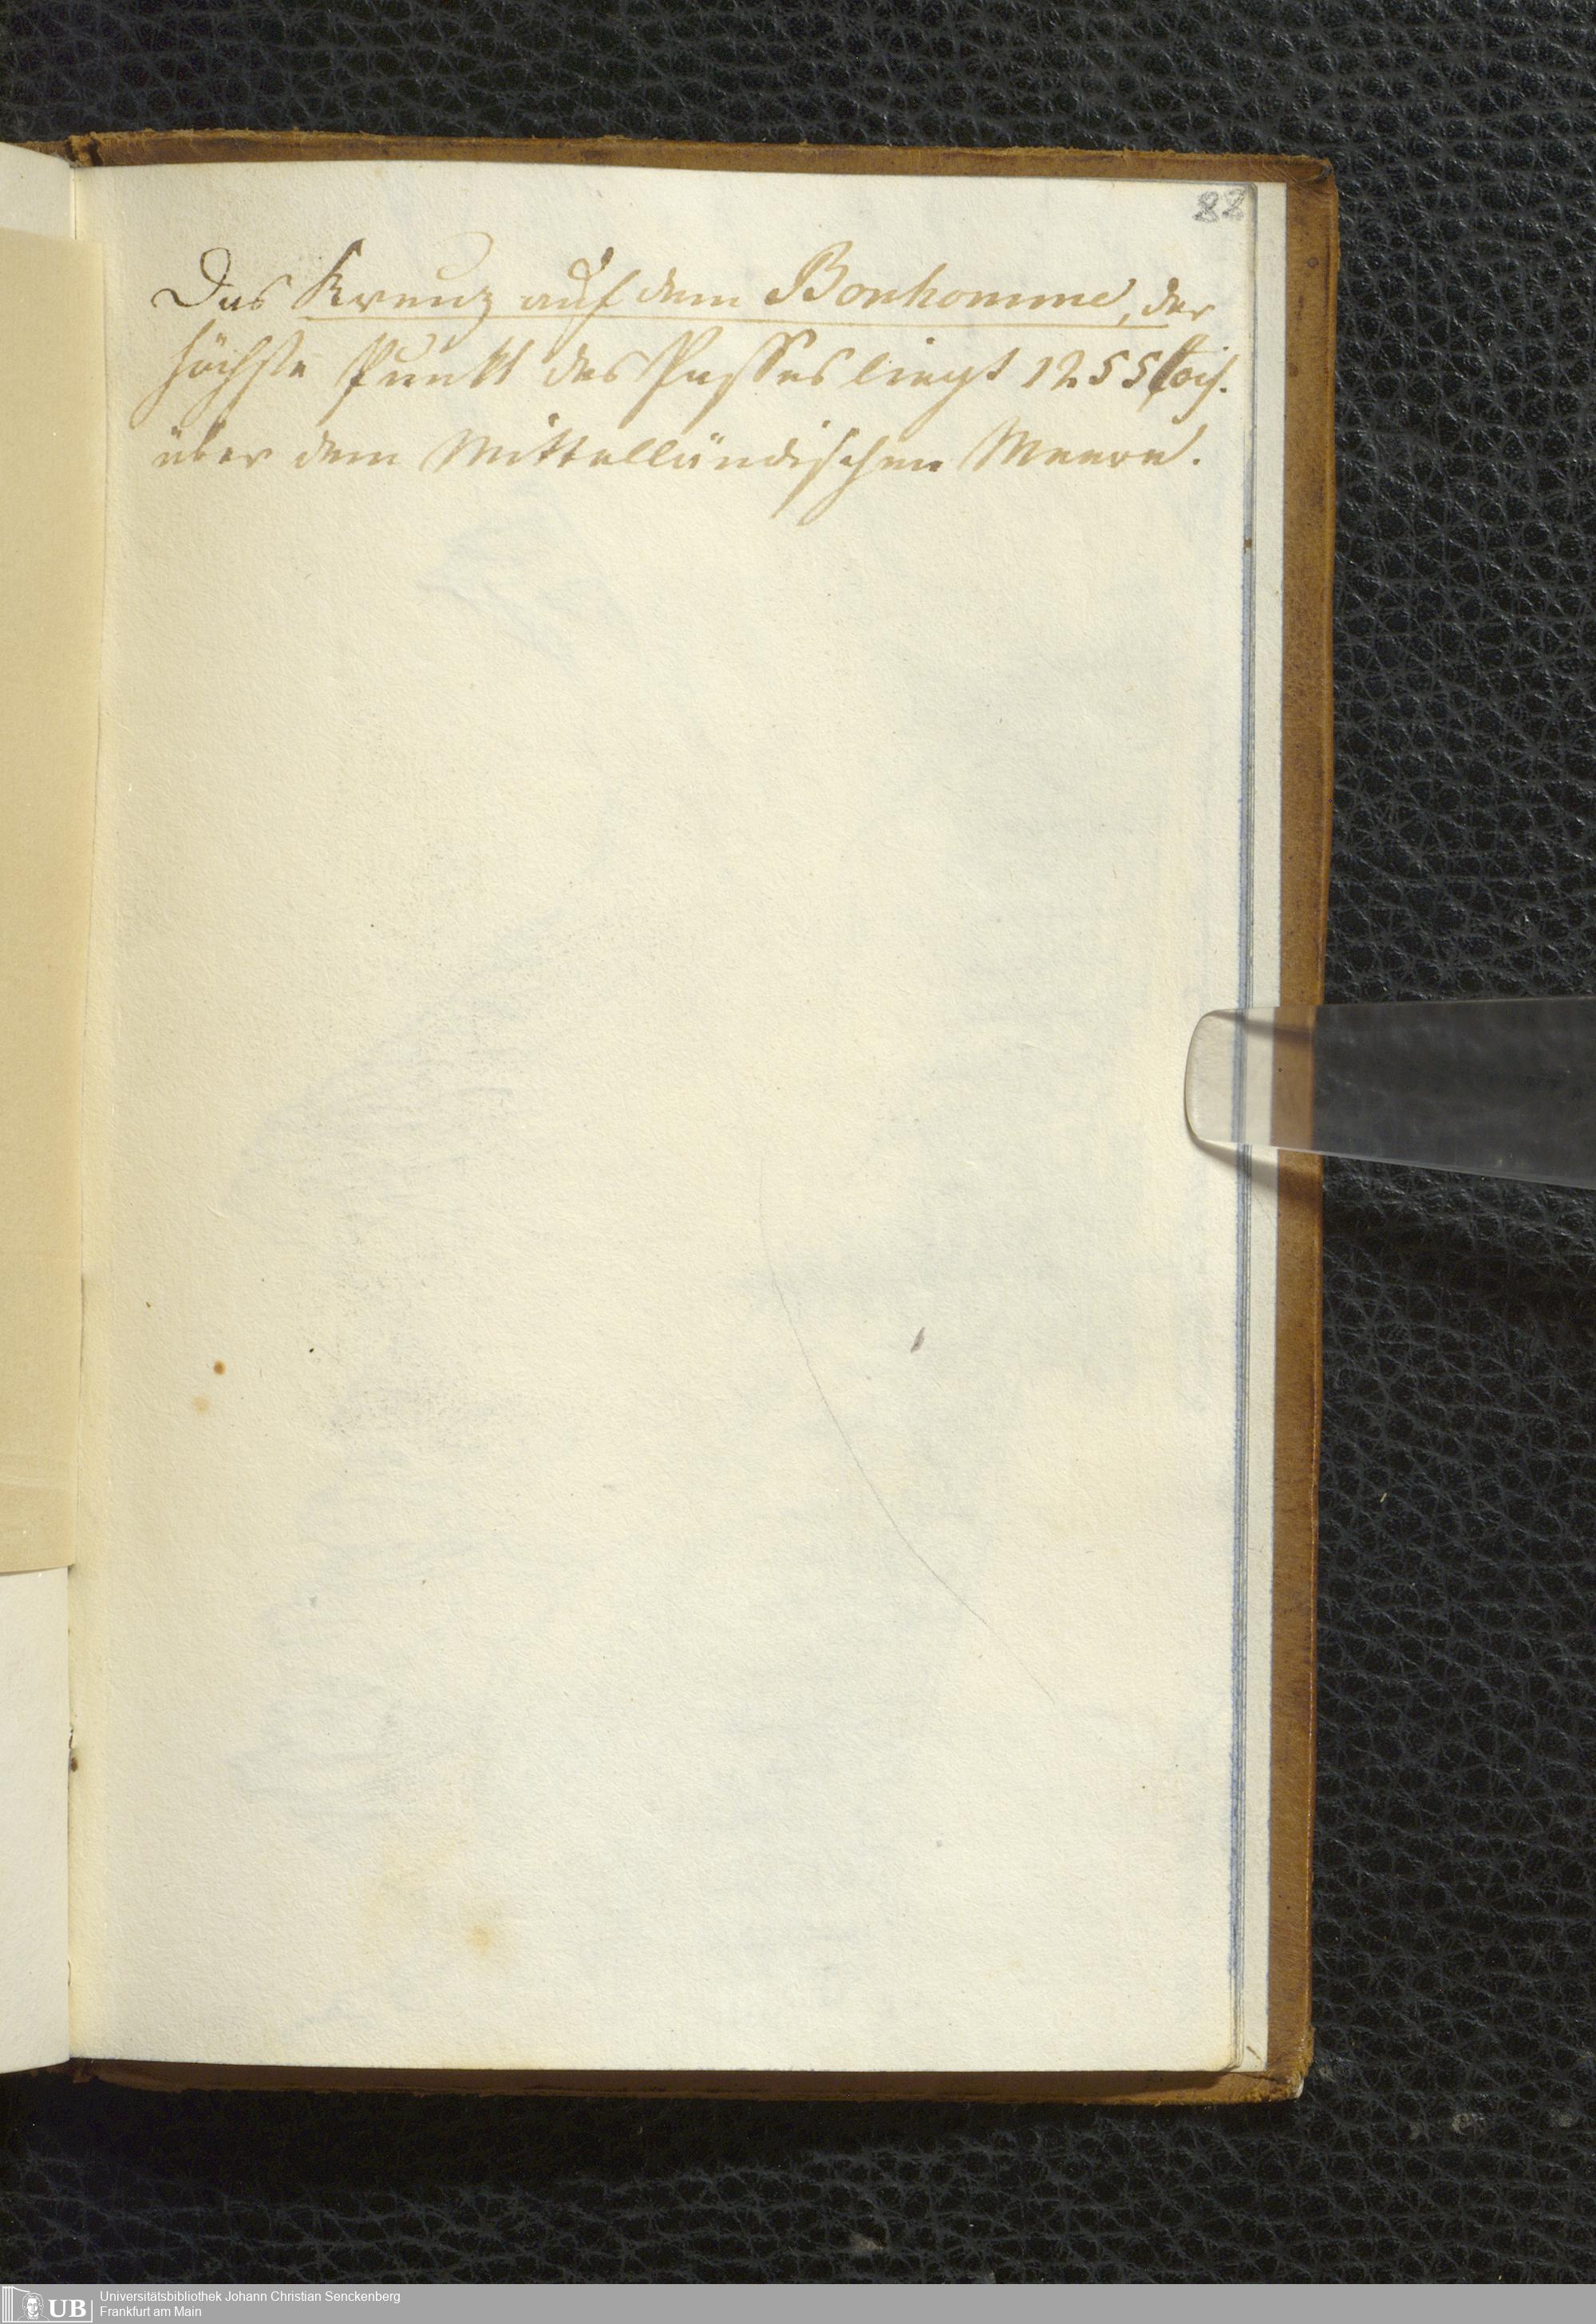 88
Das Kreuz auf dem Bonhomme, der
höchste Punkt des Passes liegt 1255 tois.
über dem Mittelländischen Meere.
UB
Universitätsbibliothek Johann Christian Senckenberg
Frankfurt am Main